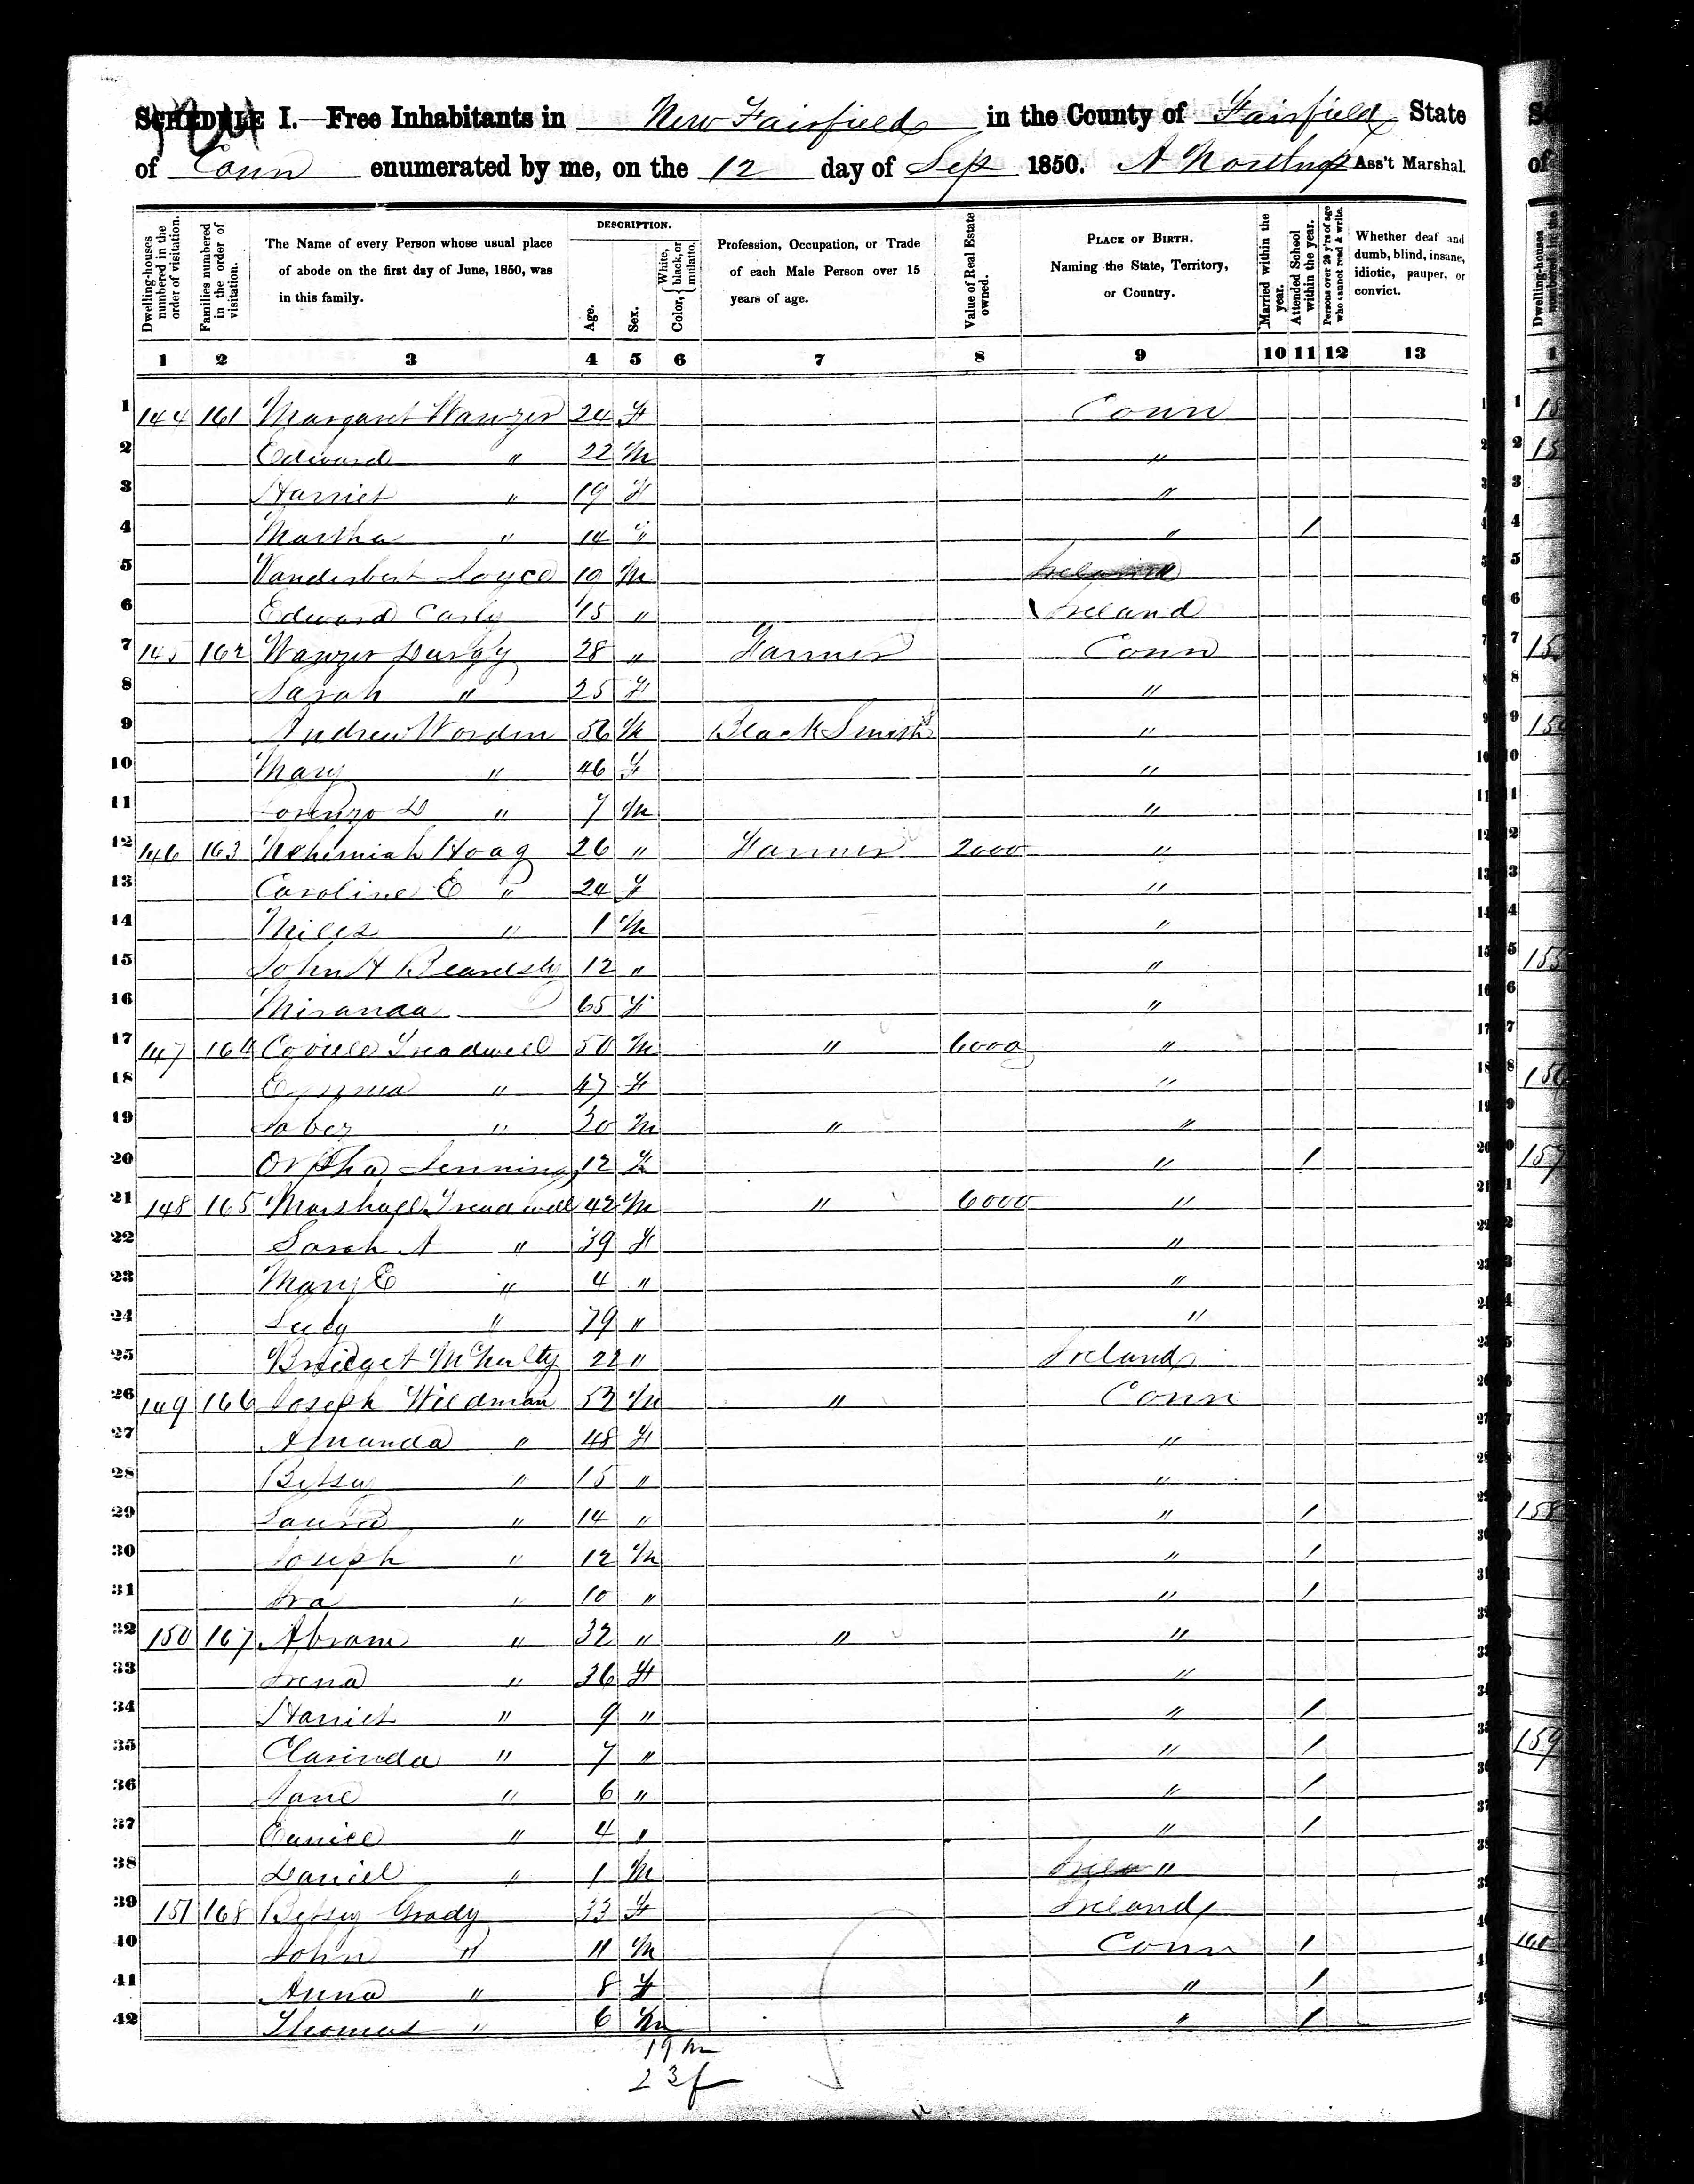 SCHEDULE I.—Free Inhabitants in New Fairfield in the County of Fairfield State
of Conn enumerated by me, on the 12 day of Sep 1850. A Northrop Ass't Marshal.
Dwelling-houses numbered in the order of visitation.
Families numbered in the order of visitation.
The Name of every Person whose usual place of abode on the first day of June, 1850, was in this family.
DESCRIPTION.
Age.
Sex.
Color, { White, black, or mulatto.
Profession, Occupation, or Trade of each Male Person over 15 years of age.
Value of Real Estate owned.
PLACE OF BIRTH. Naming the State, Territory, or Country.
Married within the year.
Attended School within the year.
Persons over 20 y'rs of age who cannot read & write.
Whether deaf and dumb, blind, insane, idiotic, pauper, or convict.
1 2 3 4 5 6 7 8 9 10 11 12 13
1 144 161 Margaret Wanzer 24 F Conn
2 Edward " 22 M "
3 Harriet " 19 F "
4 Martha " 14 " " /
5 Vanderbert Joyce 19 M
6 Edward 15 " Ireland
7 145 162 Wanzer Durgy 28 " Farmer Conn
8 Sarah " 25 F "
9 Andrew Worden 56 M Black Smith "
10 Mary " 46 F "
11 Lorenzo D " 7 M "
12 146 163 Nehemiah Hoag 26 " Farmer 2000 "
13 Caroline E " 24 F "
14 Miles " 1 M "
15 John A Beardsly 12 " "
16 Miranda 65 F "
17 147 164 Treadwell 50 M " 6000 "
18 " 47 F "
19 " 30 M " "
20 Orpha Jennings 12 F " /
21 148 165 Marshall Treadwell 42 M " 6000 "
22 Sarah A " 39 F "
23 Mary E " 4 " "
24 Lucy " 79 " "
25 Bridget McNulty 22 " Ireland
26 149 166 Joseph Wildman 53 M " Conn
27 Amanda " 48 F "
28 Betsey " 15 " "
29 Laura " 14 " " /
30 Joseph " 12 M " /
31 Ira " 10 " " /
32 150 167 Abram " 32 " " "
33 Irena " 36 F "
34 Harriet " 9 " " /
35 Clarinda " 7 " " /
36 Jane " 6 " " /
37 Eunice " 4 " " /
38 Daniel " 1 M "
39 151 168 Betsey Grady 33 F Ireland
40 John " 11 M Conn /
41 Anna " 8 F " /
42 Thomas " 6 M " /
19 m
23 f